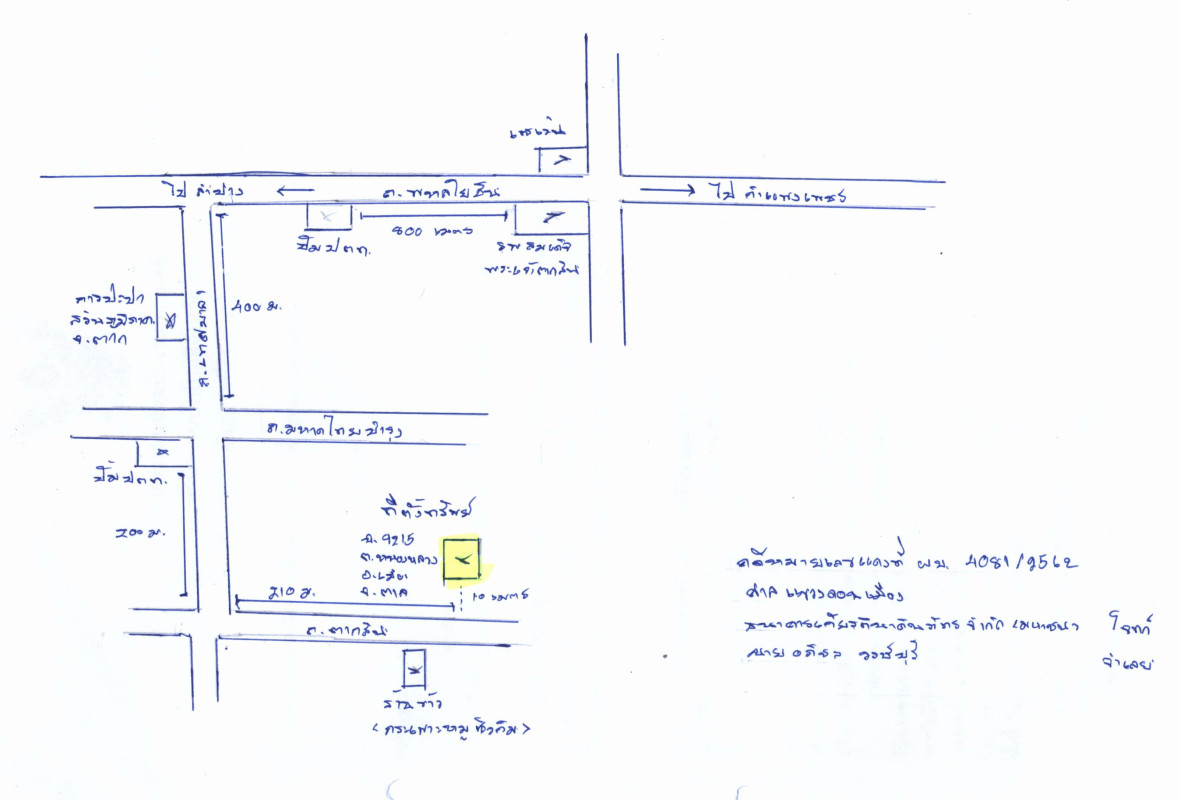 เซเว่น
ไป ลำปาง
ถ. พหลโยธิน
ไป กำแพงเพชร
ปั๊ม ปตท.
800 เมตร
รพ สมเด็จ
พระเจ้าตากสิน
การประปา
ส่วนภูมิภาค
จ.ตาก
ถ.เทศบาล1
400 ม.
ถ.มหาดไทยบำรุง
ปั๊ม ปตท.
200 ม.
ที่ตั้งทรัพย์
ต.หนองหลวง
อ.เมือง
จ.ตาก
210 ม.
10 เมตร
ถ.ตากสิน
ร้านข้าว
(กระเพาะหมู
คดีหมายเลขแดงที่ ผบ. 4081/2562
ศาล แขวงดอนเมือง
ธนาคารเกียรตินาคินภัทร จำกัด (มหาชน) โจทก์
นาย
จำเลย